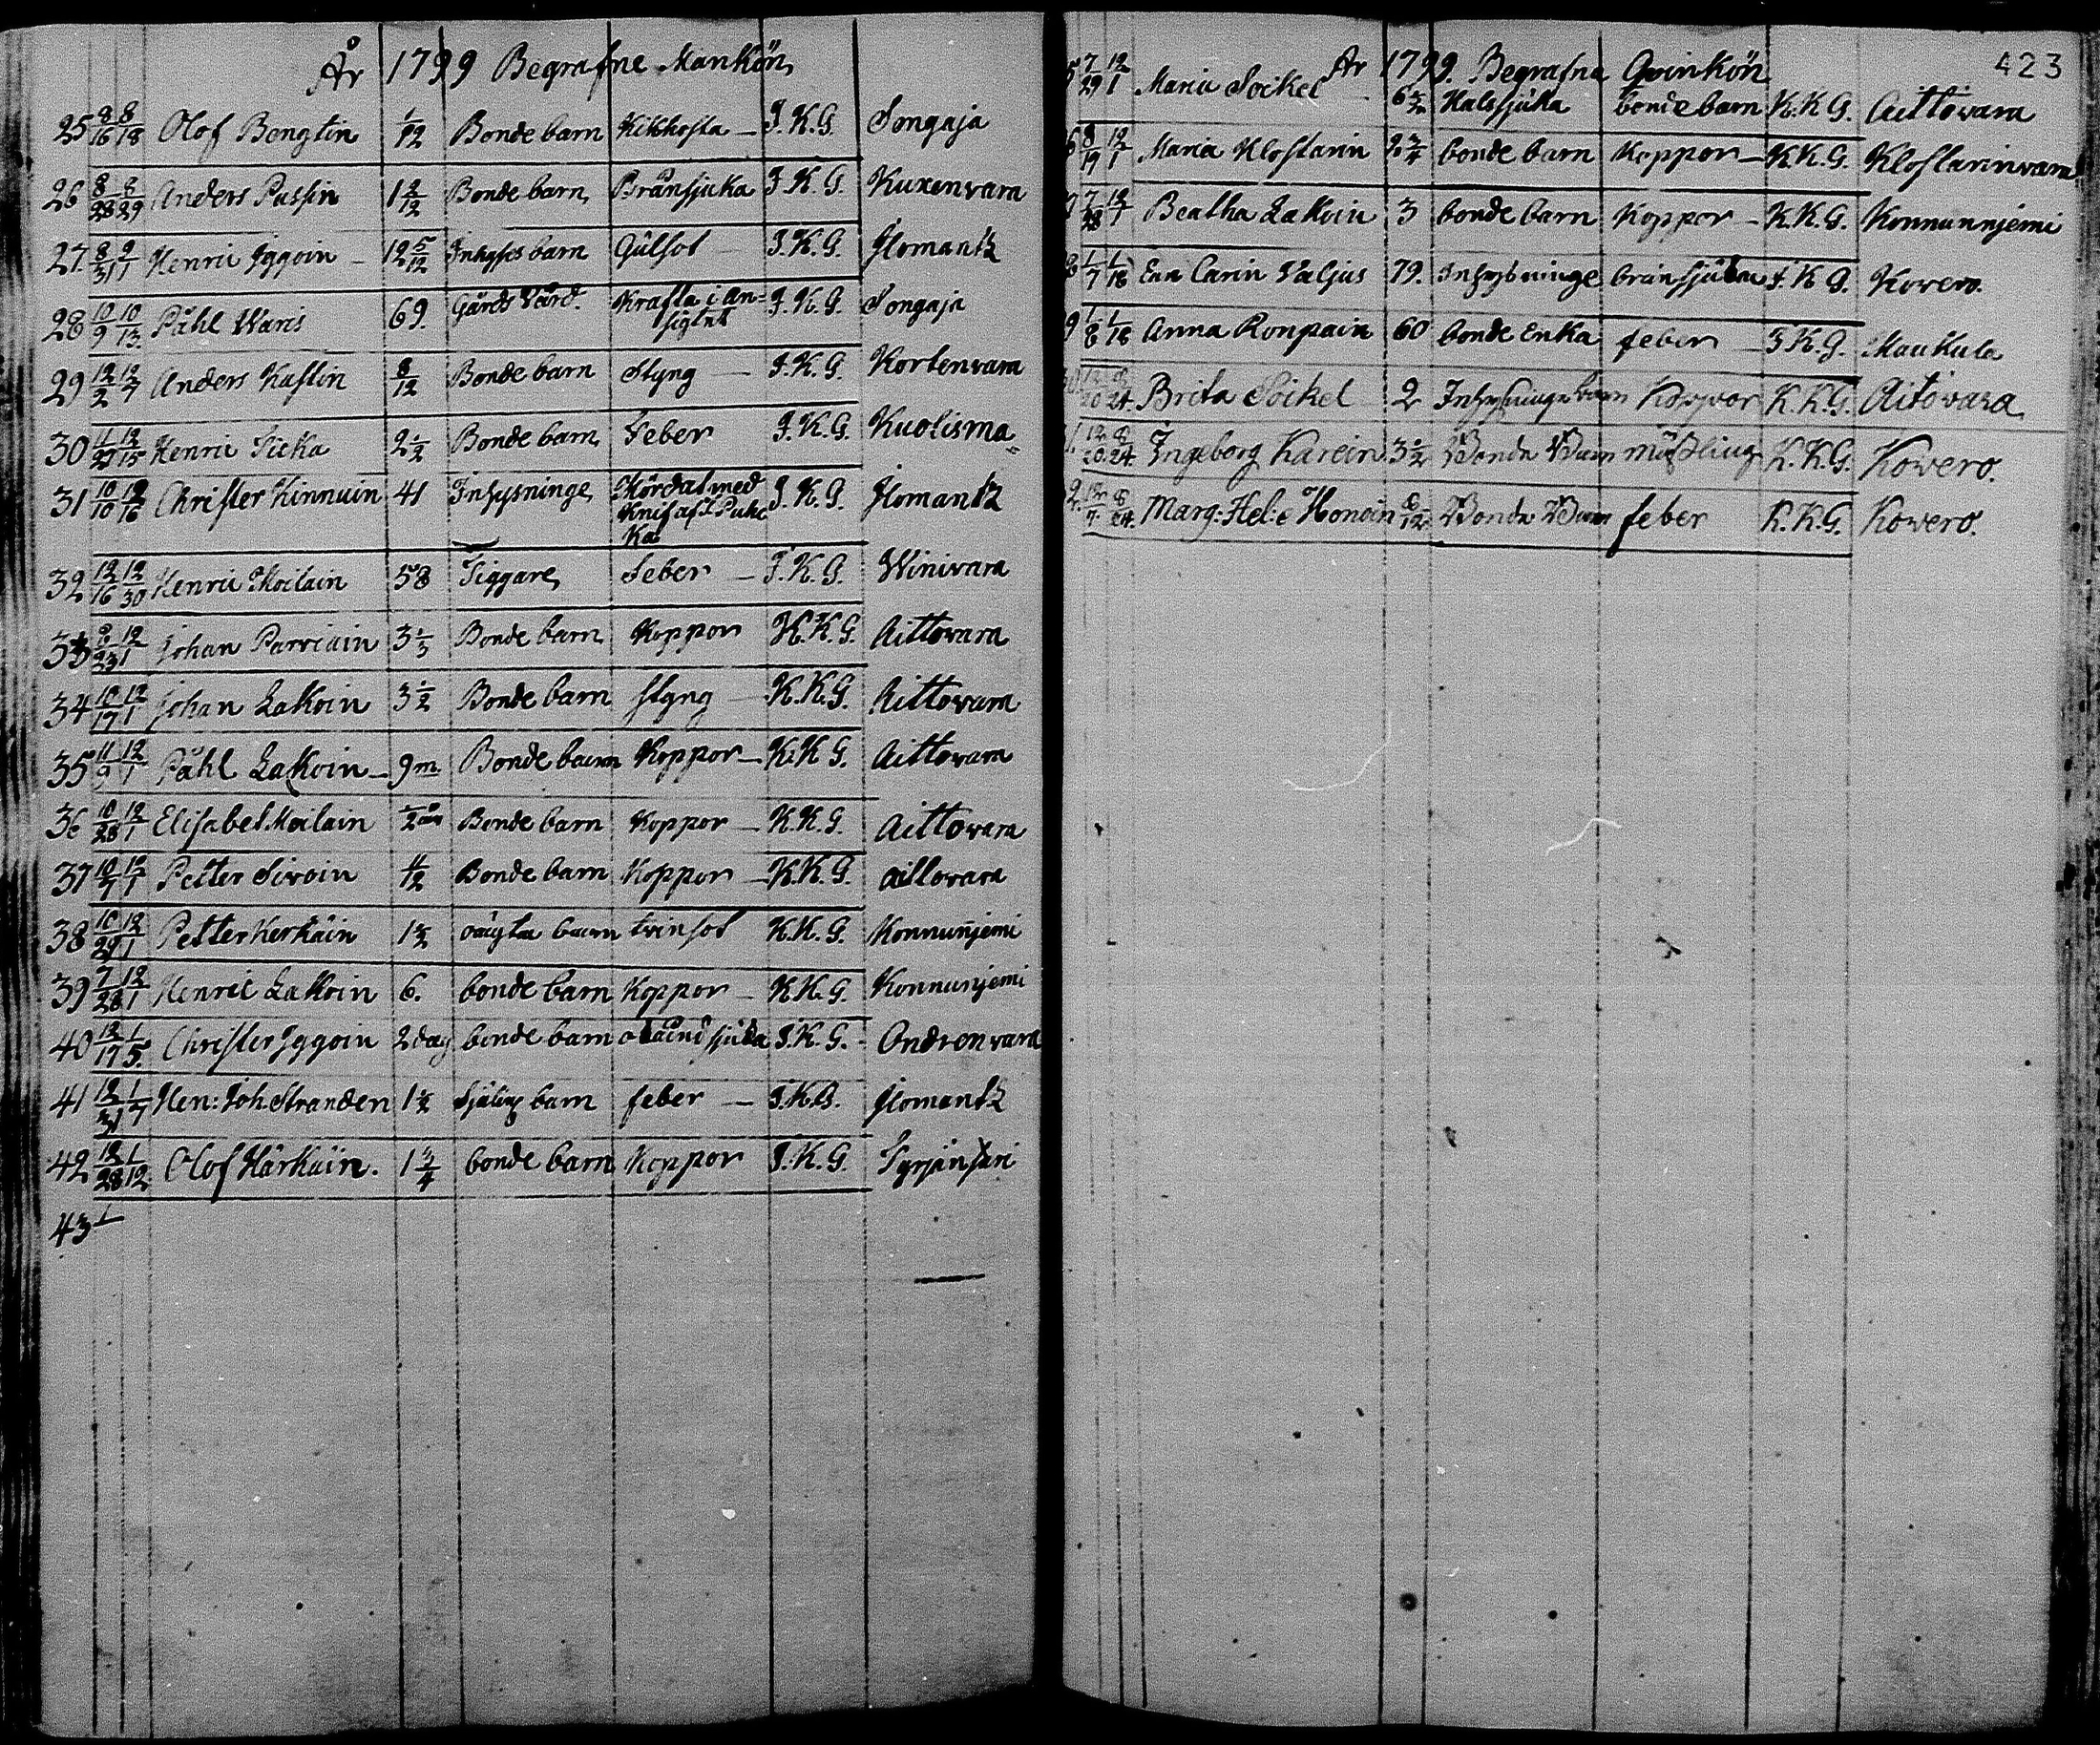 År 1799 Begrafne Mankön
25 8/16 8/18 Olof Bengtin 1/12 Bonde barn Kikhosta — I.K.G. Songaja
26 8/28 8/29 Anders Passin 1 2/12 Bonde barn Bränsjuka I.K.G. Kuxenvara
27. 8/31 9/1 Henric Iggoin — 12 5/12 Inhyses barn Gülsot — I.K.G. Ilomantz
28 10/9 10/13 Påhl Waris 69. Gårds Värd. Kräfta i an=
sigtet I.K.G. Songaja
29 12/2 12/7 Anders Kastin 8/12 Bonde barn Styng — I.K.G. Kortenvara
30 11/27 12/15 Henric Sicka 2 1/2 Bonde barn Feber I.K.G. Kuolisma
31 10/10 12/16 Christer Kinnuin 41 Inhysninge Mördat med
Knif af I.K.G. Ilomantz
32 12/16 12/30 Henric Moilain 58 Tiggare Feber — I.K.G. Winivara
33 12/1 Johan Parviain 3 1/3 Bonde barn Koppor K.K.G. Aittovara
34 10/17 12/1 Johan Lakoin 3 1/2 Bonde barn styng K.K.G. Aittovara
35 11/9 12/1 Påhl Lakoin — 9 m. Bonde barn Koppor — K.K.G. Aittovara
36 10/28 12/1 Elisabet Moilain 1/2 år Bonde barn Koppor — K.K.G. Aittovara
37 10/7 12/1 Petter Sivoin 11/12 Bonde barn Koppor — K.K.G. aittovara
38 10/29 12/1 Petter Kerkäin 1 1/2 oäyta barn tvinsot K.K.G. Konnunjemi
39 7/28 12/1 Henric Lakoin 6. bonde barn Koppor — K.K.G. Konnunjemi
40 12/17 1/5. Christer Iggoin 2 dag bonde barn obäend sjuka I.K.G. - Ondronvara
41 12/31 1/7 Hen: Joh. Stranden 1 1/2 barn feber — I.K.G. Ilomantz
42 12/28 1/12 Olof Härkäin. 1 3/4 bonde barn Koppor I.K.G.
43 1
423
År 1799. Begrafna Qvinkön
5 7/29 12/1 Maria Soikel 6 1/2 Halssjüka bonde barn K.K.G. Aittovara
6 8/19 12/1 Maria Klostarin 2 3/4 bonde barn Koppor — K.K.G. Klostarinvara
7 7/28 12/1 Beatha Lakoin 3 bonde barn Koppor — K.K.G. Konnunnjemi
8 1/7 1/18 Eva Carin Valjus 79. Inhysninge bränsjüka I.K.G. Kovero.
9 1/8 1/18 Anna Ronpain 60 bonde Enka feber — I.K.G. Maukula
Brita Soikel 2 Inhysninge barn Koppor K.K.G. Aitovara
Ingeborg Karein 3 1/2 Bonda Barn mäßling K.K.G. Kovero.
Marg: Hel:e Honoin 8/12 Bonda Barn feber K.K.G. Kovero.